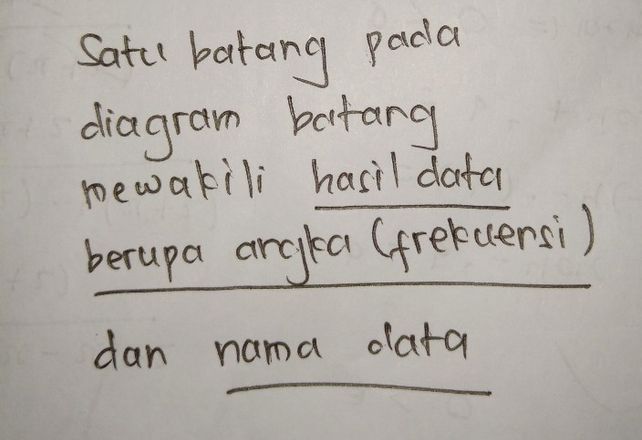 Satu batang pada
diagram batang
mewakili hasil data
berupa angka (frekuensi)
dan nama data